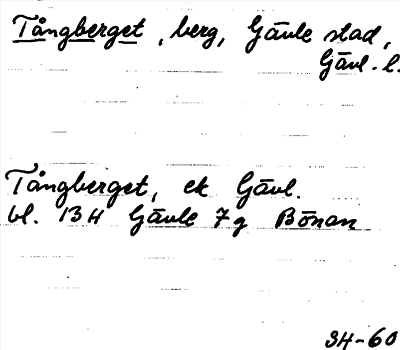 Tångberget, berg, Gävle stad,
Gävl. l.
Tångberget, ek Gävl.
bl. 13H Gävle 7g Bönan
SH-60